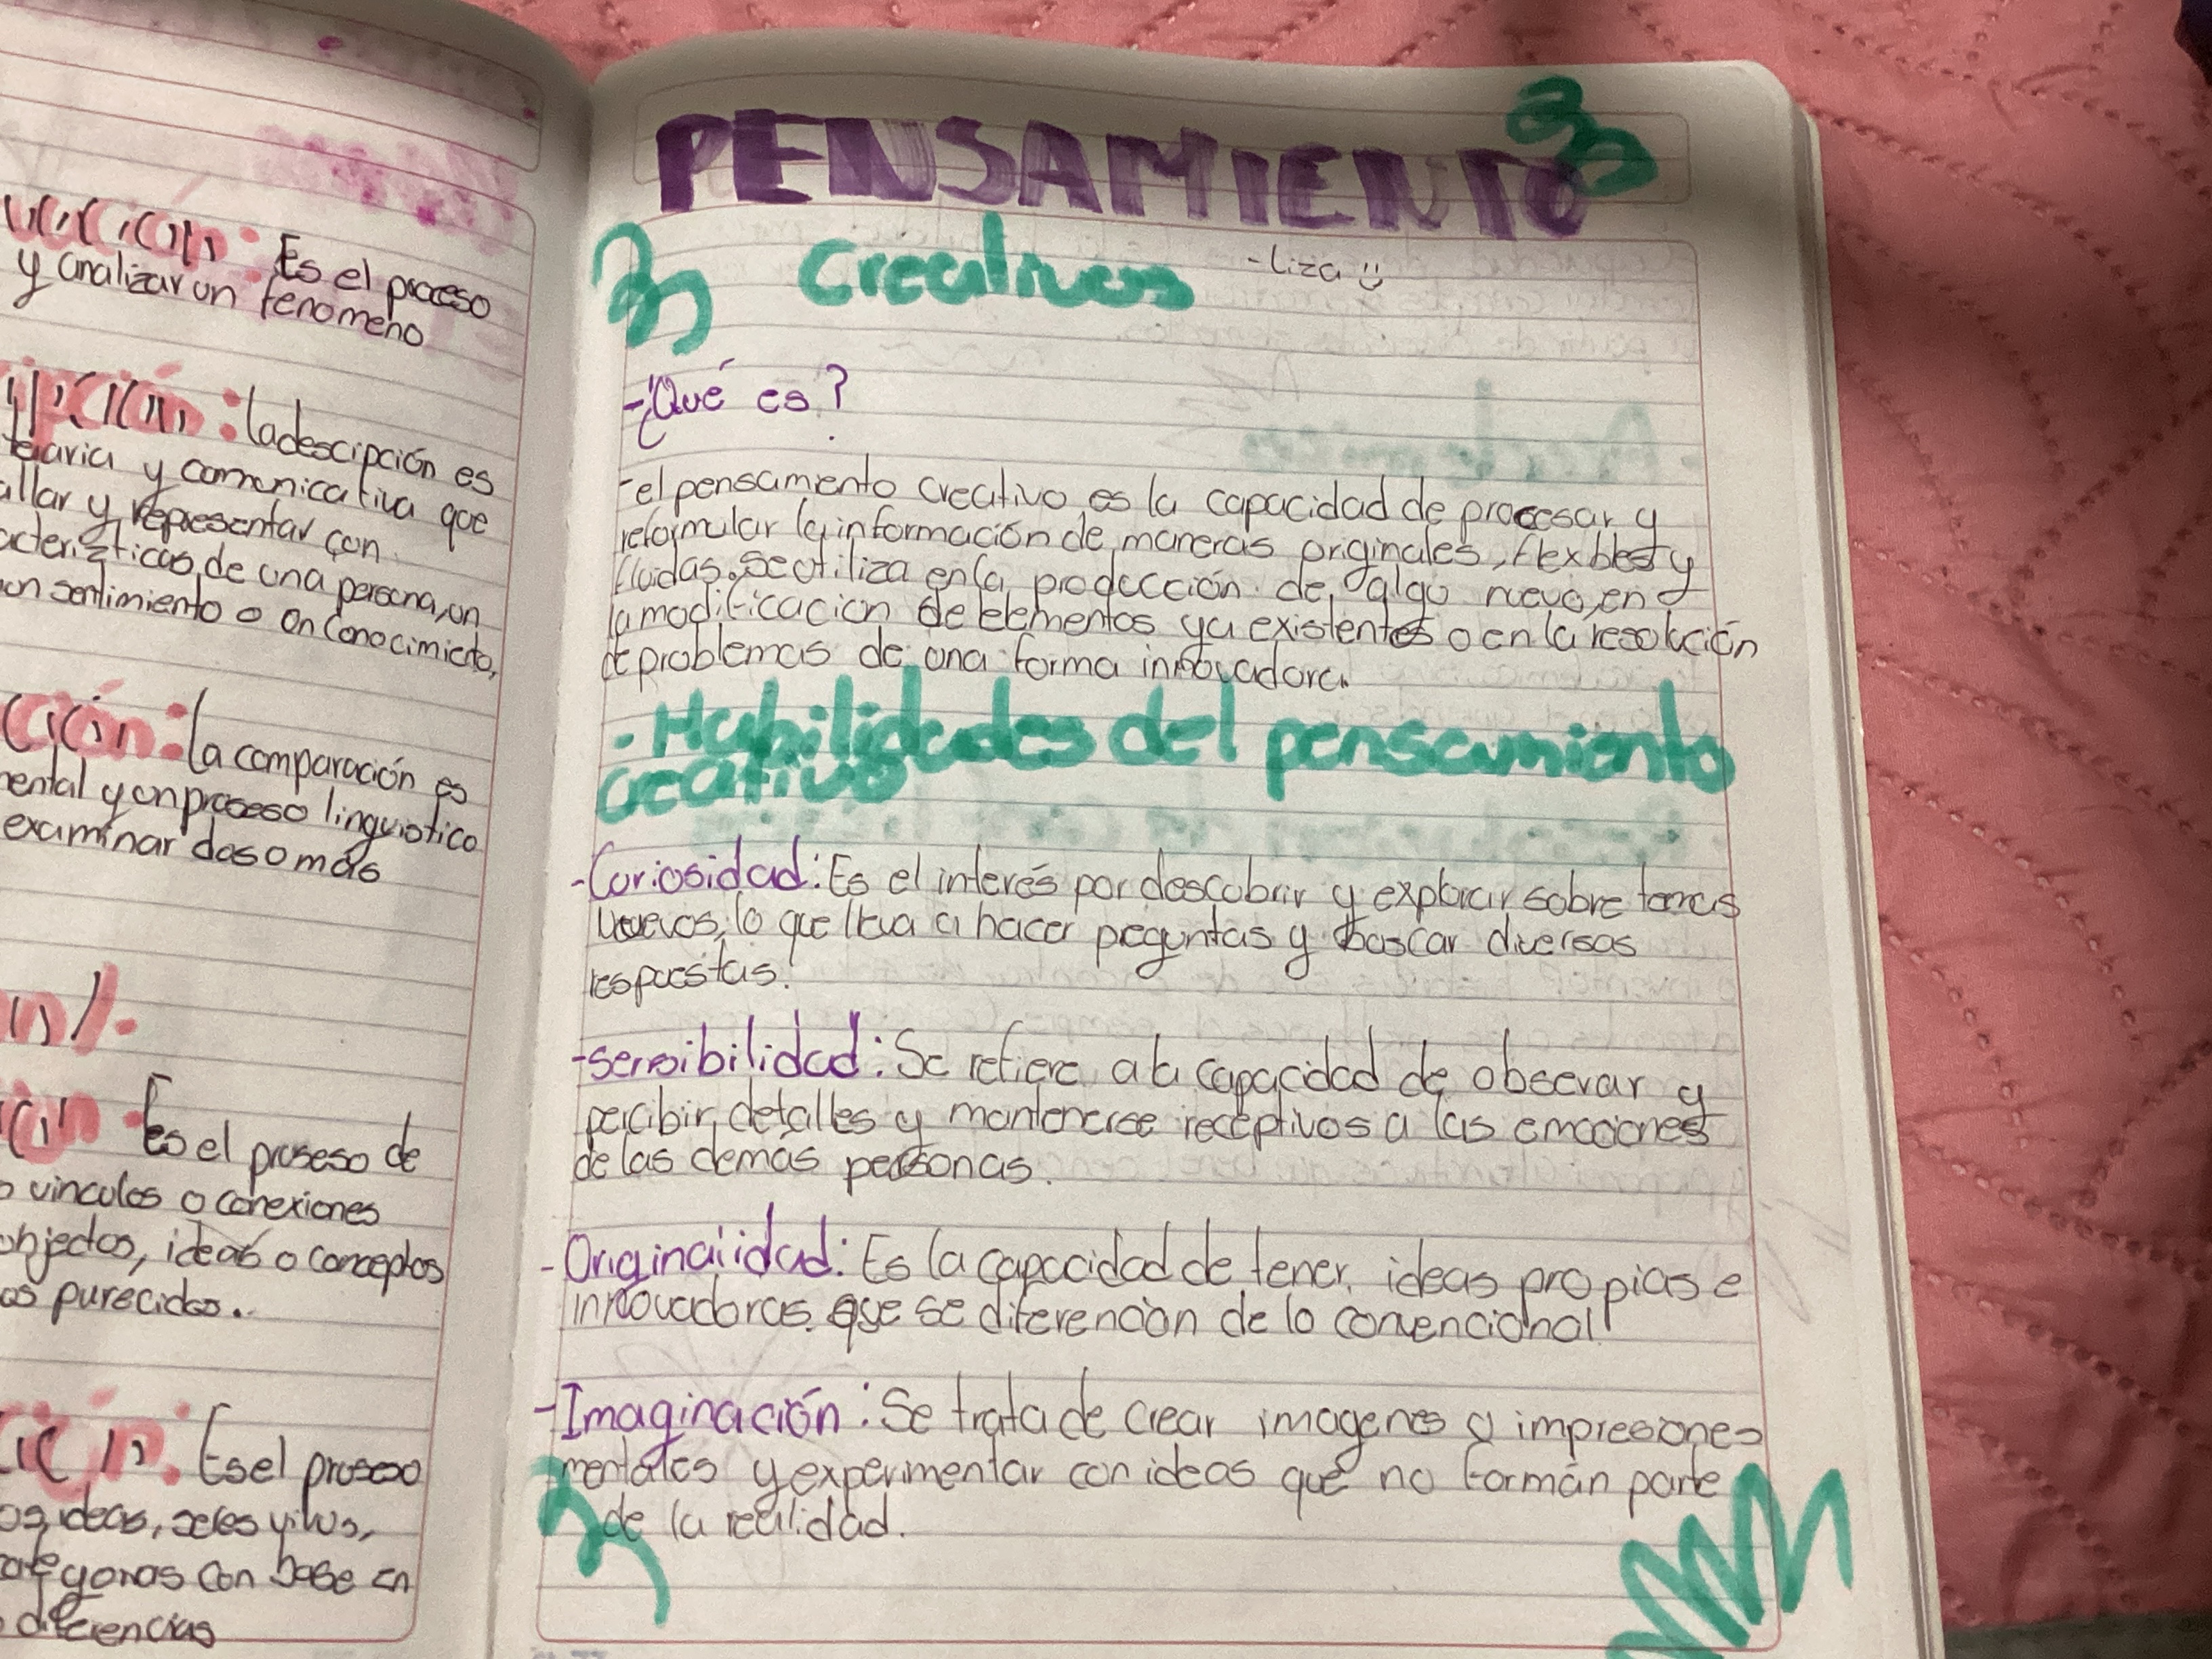 Es el proceso
y analizar un fenomeno
la descipción es
y comunicativa que
allar y representar con
de una persona, un
un sentimiento o un conocimiento,
la comparación es
mental y un proceso linguistico
examinar dos o más
Es el proseso de
vinculos o conexiones
objectos, ideas o conceptos
parecidos.
Es el proseso
ideas,
con base en
diferencias
PENSAMIENTO
Creativos -Liza
-¿Qué es?
-el pensamiento creativo es la capacidad de procesar y
reformular la información de maneras originales, flexbles y
fluidas. Se utiliza en la producción de algo nuevo, en
la modificacion de elementos ya existentes o en la resolución
de problemas de una forma innovadora.
- Habilidades del pensamiento
creativo
-Curiosidad: Es el interés por descubrir y explorar sobre temas
nuevos, lo que lleva a hacer preguntas y buscar diversas
respuestas.
-sensibilidad: Se refiere a la capacidad de observar y
percibir detalles y mantenerse receptivos a las emociones
de las demás personas.
-Originalidad: Es la capacidad de tener ideas propias e
innovadoras que se diferencian de lo convencional
-Imaginación: Se trata de crear imagenes o impresiones
mentales y experimentar con ideas que no formán parte
de la realidad.